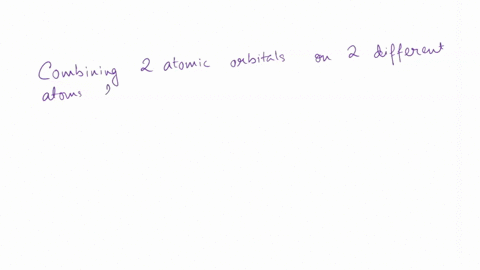 Combining 2 atomic orbitals on 2 different
atoms ,